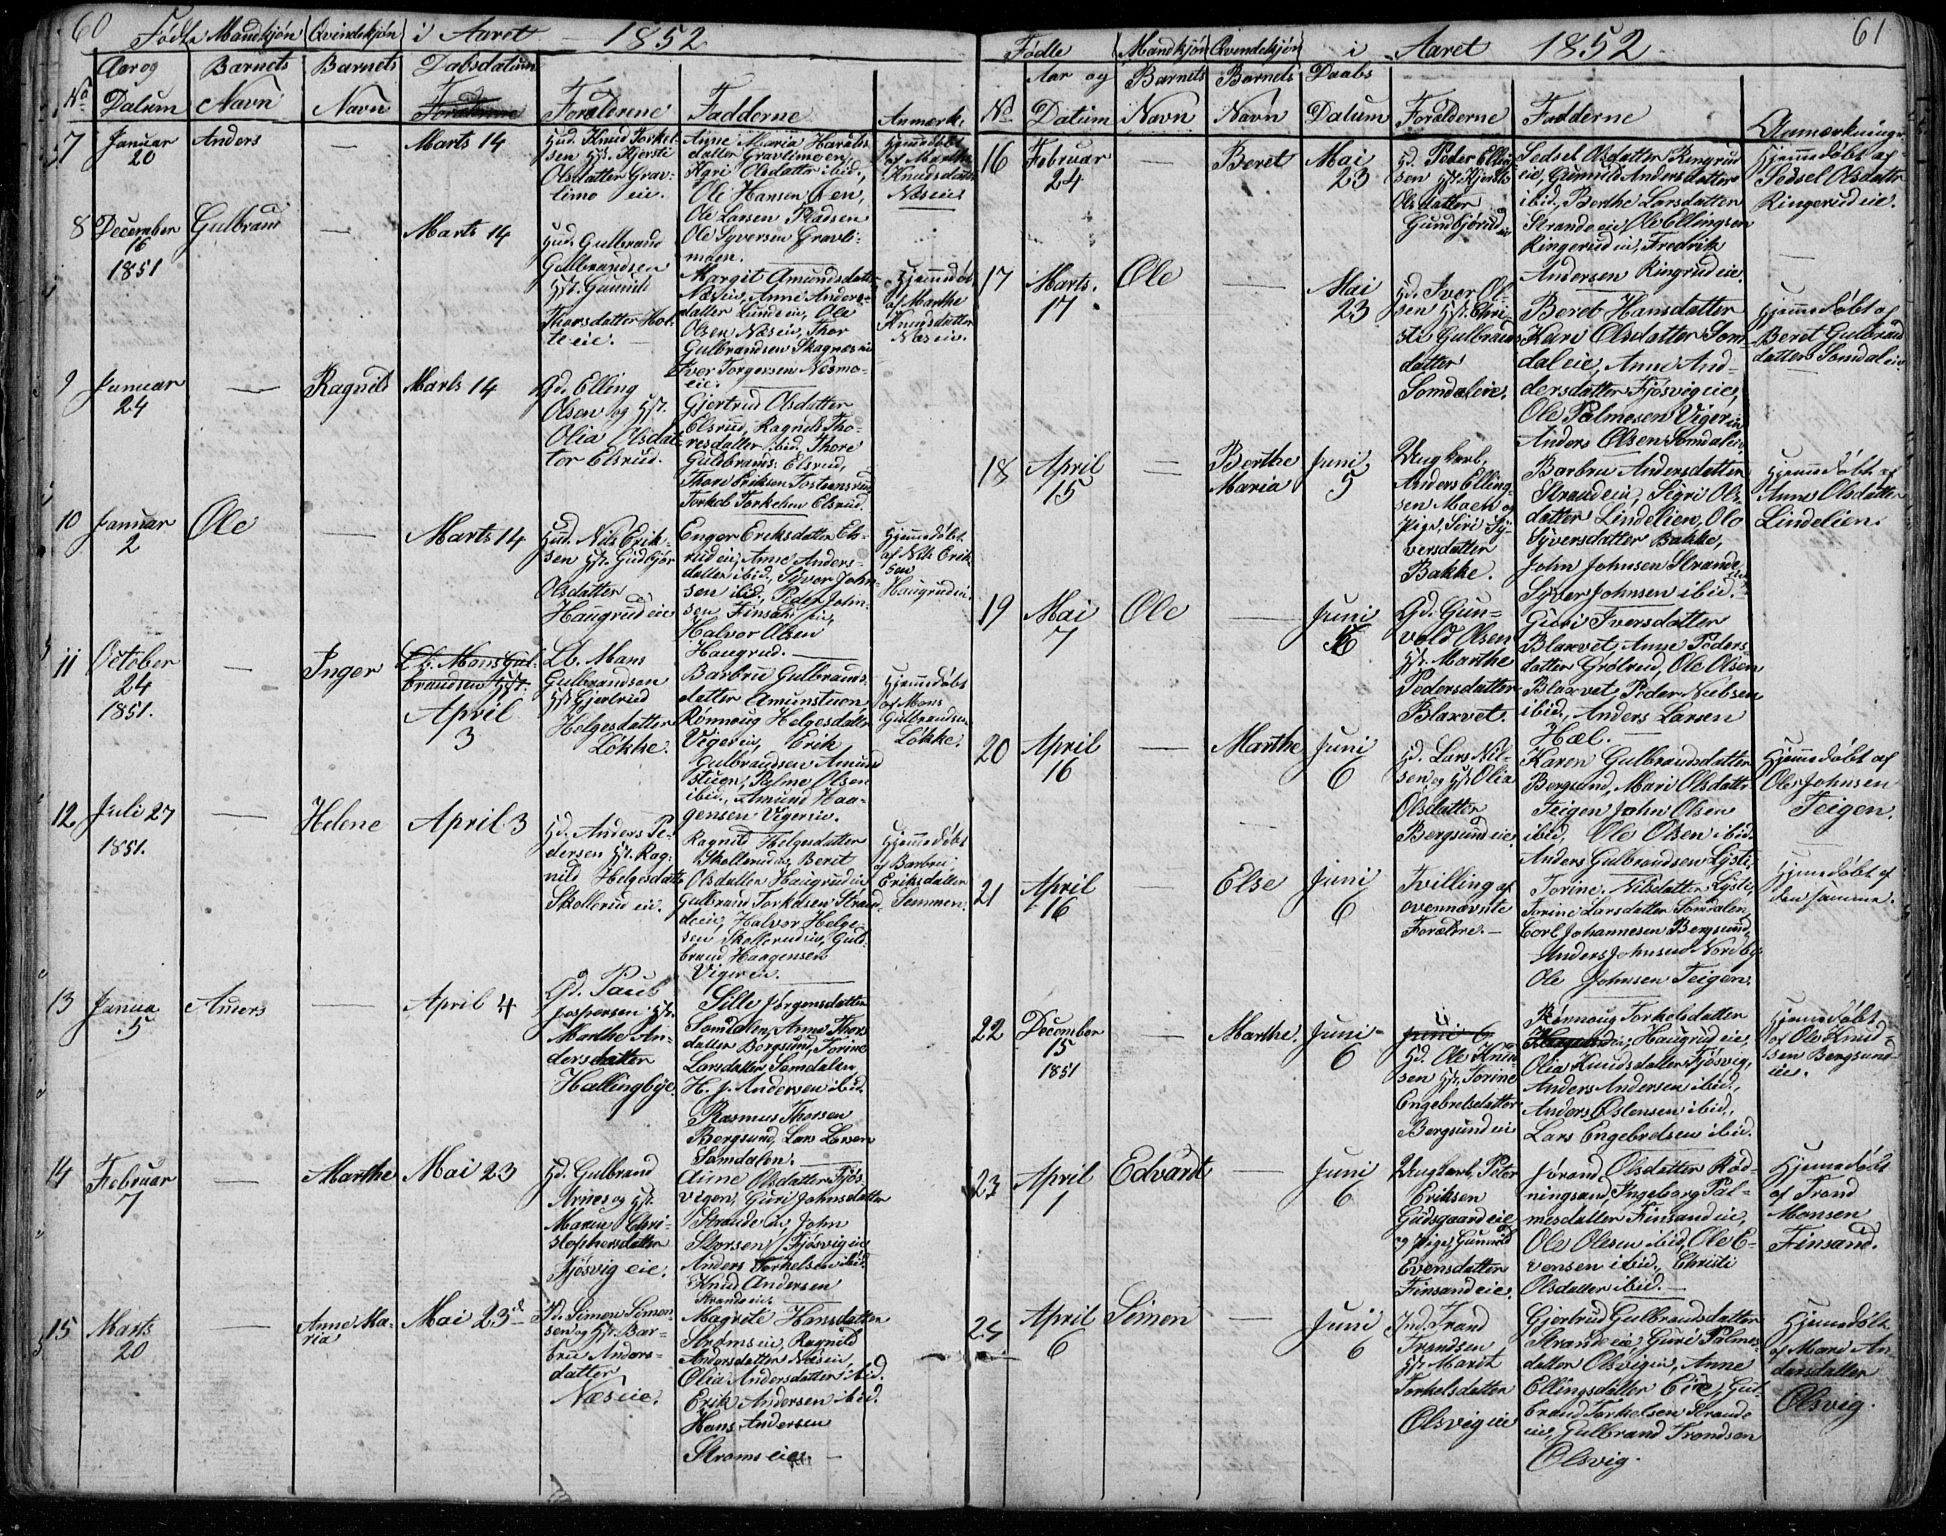 60
Fødte Mandkjøn Qvindekjøn i Aaret 1852
No
Aar og
Datum
Barnets
Navn
Barnets
Navn
Dabsdatum
Forældrene
Fadderne
Anmærk:
7
Januar
20
Anders
—
Marts 14
Hud. Knud Torkel-
sen Hst. Kjersti
Olsdatter Grav-
limo eie.
Anne Maria Harals-
datter Gravlimoen,
Kari Olsdatter ibid.,
Ole Hansen Øen,
Ole Larsen
Ole Syversen Gravli-
moen.
Hjemmedøbt
af Marthe
Knudsdatter
Næs eie
8
December
16
1851
Gulbrand
—
Marts 14
Hud. Gulbrand
Gulbrandsen
Hst. Gunild
Thorsdatter Hol-
te eie.
Margit Amundsdatter
Næs eie, Anne Anders-
datter Lunde eie, Ole
Olsen Næs eie, Thor
Gulbrandsen Skagnæs eie
Iver Torgersen Næsmo-
eie.
Hjemmedøbt
af Marthe
Knudsdatter
Næs eie.
9
Januar
24
—
Ragnild
Marts 14
Gd. Elling
Olsen og Hst.
Olia Olsdat-
ter Elsrud.
Gjertrud Olsdatter
Elsrud, Ragnild Tho-
resdatter ibid. Thore
Guldbrands: Elsrud,
Thore Eriksen Tosteensrud
Torkel Torkelsen Elsrud.
10
Januar
2
Ole
—
Marts 14
Hud. Nils Erik-
sen Hst. Gudbjør
Olsdatter
Haugrud eie
Enger Eriksdatter Els-
rud eie, Anne Anders-
datter ibid., Syver John-
sen ibid., Peder John-
sen Finsand eie,
Halvor Olsen
Haugrud.
Hjemmedøbt
af Nils Erik-
sen
Haugrud eie.
11
October
24
1851.
—
Inger
Lb. Mons Gul-
brandsen Hst.
April
3
Lb. Mons
Gulbrandsen
Hst Gjertrud
Helgesdatter
Løkke.
Barbru Gulbrands-
datter Amunstuen
Rønnoug Helgesdatter
Viger eie, Erik
Gulbrandsen Amund
stuen, Palme Olsen
ibid., Amund Haa-
gensen Viger eie.
Hjemmedøbt
af Mons
Gulbrandsen
Løkke.
12
Juli 27
1851.
—
Helene
April 3
Hd. Anders Pe-
dersen Hst. Rag-
nild Helgesdatter
Skollerud eie.
Ragnild Helgesdatter
Skollerud eie, Beret
Olsdatter Haugrud eie
Gulbrand Torkelsen Stran-
de eie, Halvor Helge-
sen Skollerud eie, Guld-
brand Haagensen
Viger eie.
Hjemmedøbt
af Barbru
Eriksdatter
Semmen.
13
Janua
5
Anders
—
April 4
Gd. Paul
Jospersen Hst.
Marthe An-
dersdatter
Hallingbye.
Sille Jørgensdatter
Somdalen, Anne Thors
datter Bergsund, Torine
Larsdatter Somdalen,
H. J. Andersen ibid.
Rasmus Thorsen
Bergsund, Lars Larsen
Somdalen.
14
Februar
7
—
Marthe
Mai 23
Hd. Gulbrand
Arnes og Hst.
Maren Chri-
stophersdatter
Fjøsvig eie.
Anne Olsdatter Fjøs-
vigen, Guri Johnsdatter
Strande eie, John
Storsen Fjøsvig eie
Anders Torkelsen ibid.
Knud Andersen
Strande eie.
15
Marts
20
—
Anne Ma-
ria
Mai 23
Hd. Simen Simen-
sen og Hst. Bar-
bru Anders-
datter
Næs eie.
Magrete Hansdatter
Strøms eie, Ragnild
Andersdatter Næs eie,
Olia Andersdatter ibid.
Erik Andersen ibid.
Hans Andersen
Strøms eie
61
Fødte Mandkjøn Qvindekjøn i Aaret 1852
No
Aar og
Datum
Barnets
Navn
Barnets
Navn
Daabs
Datum
Forælderne
Fadderne
Anmærkninger
16
Februar
24
—
Beret
Mai
23
Hd. Peder Elling-
sen Hst. Kjersti
Olsdatter
Gundbjørud
eie
Sedsel Olsdatter Ringerud
eie, Gunnild Andersdatter
ibid, Berthe Larsdatter
Strande eie, Ole Ellingsen
Ringerud eie, Fredrik
Andersen Ringrud eie.
Hjemmedøbt af
Sedsel Olsdatter
Ringerud eie.
17
Marts.
17
Ole
—
Mai
23
Hd. Iver Ol-
sen Hst. Chri-
sti Gulbrands
datter
Somdal eie.
Beret Hansdatter
Kari Olsdatter Som-
dal eie, Anne An-
dersdatter Fjøsvig eie,
Ole Palmesen Viger eie
Anders Olsen Somdal eie
Hjemmedøbt af
Beret Gulbrand
datter Somdal eie
18
April
15
—
Berthe
Maria
Juni
5
Ungkarl,
Anders Elling-
sen Moen og
Pige, Siri Sy-
versdatter
Bakke.
Barbru Andersdatter
Strande eie, Sigri Ols-
datter Lindelien, Olo
Syversdatter Bakke,
John Johnsen Strande
eie
Syver Johnsen ibid.
Hjemmedøbt af
Anne Olsdatter
Lindelien.
19
Mai
7
Ole
—
Juni
6
Gd. Gun-
vald Olsen
Hst. Marthe
Pedersdatter
Blaxvet.
Guri Iversdatter
Blaxvet, Anne Peders-
datter Grølrud, Ole Olsen
Blaxvet, Peder Nielsen
ibid., Anders Larsen
Hæl.
20
April
16
—
Marthe
Juni
6
Hd. Lars Nil-
sen og Hst Olia
Olsdatter
Bergsund eie.
Karen Gulbrandsdatter
Bergsund, Mari Olsdatter
Teigen John Olsen
ibid. Ole Olsen ibid.
Anders Gulbrandsen Lyste.
Hjemmedøbt af
Ole Johnsen
Teigen.
21
April
16
—
Else
Juni
6
Tvilling af
ovennævnte
Forældre.
Torine Nilsdatter Lyste,
Torine Larsdatter Somdalen,
Carl Johannesen Bergsund,
Anders Johnsen Nordby
Ole Johnsen Teigen.
Hjemmedøbt af
den samme.
22
December
15
1851
—
Marthe.
Juni
6
Juni 6
Hd. Ole Knud-
sen Hst. Torine
Engebretsdatter
Bergsund eie
Rønnoug Torkelsdatter
Haugrud eie,
Olia Knudsdatter Fjøsvig,
Anders Andersen ibid.,
Anders Østensen ibid.,
Lars Engebretsen ibid.
Hjemmedøbt
af Ole Knud-
sen Bergsund-
eie.
23
April
1
Edvardt
—
Juni
6
Ungkarl, Peter
Eriksen
Gudsgaard eie
og Pige, Gunnild
Evensdatter
Finsand eie.
Jørand Olsdatter Rød-
ningsand, Ingeborg Pal-
mesdatter Finsand eie,
Ole Olesen ibid, Ole E-
vensen ibid., Christi
Olsdatter ibid.
Hjemmedøbt
af Trond
Monsen
Finsand.
25
April
6
Simen
—
Juni
6
Ind. Trond
Trondsen
Hst. Marit
Torkelsdatter
Olsvig eie
Gjertrud Gulbrandsdatter
Strande eie, Guri Palmes-
datter Olsvig eie, Anne
Ellingsdatter Eid, Gul-
brand Torkelsen Strande
eie, Gulbrand Trondsen
Olsvig.
Hjemmedøbt
af Mari An-
dersdatter
Olsvig.